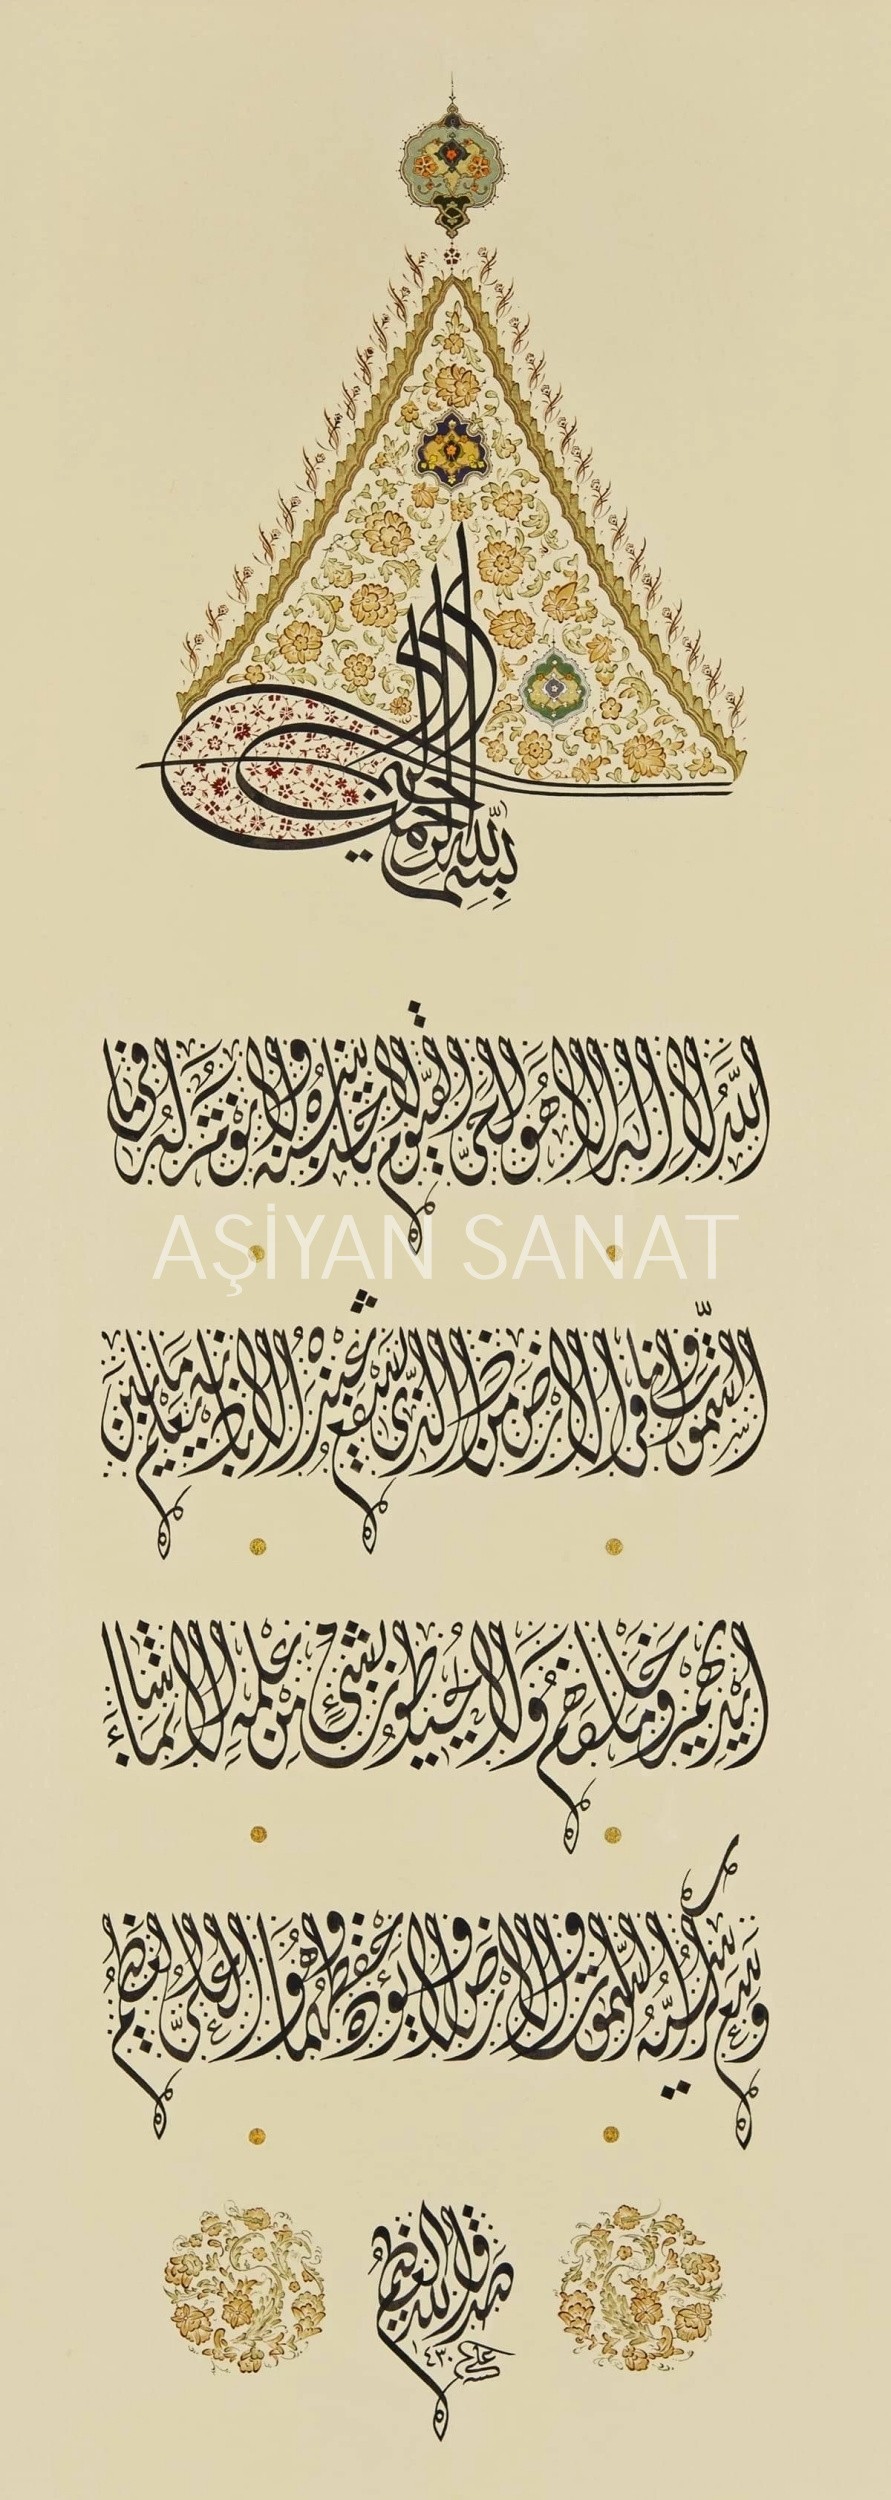 بسم الله الرحمن الرحيم
اَللّٰهُ لَا اِلٰهَ اِلَّا هُوَ الْحَىُّ الْقَيُّومُ لَا تَأْخُذُهُ سِنَةٌ وَلَا نَوْمٌ لَهُ مَا فِى
AŞİYAN SANAT
السَّمٰوَاتِ وَمَا فِى الْاَرْضِ مَنْ ذَا الَّذِى يَشْفَعُ عِنْدَهُ اِلَّا بِاِذْنِهِ يَعْلَمُ مَا بَيْنَ
اَيْدِيهِمْ وَمَا خَلْفَهُمْ وَلَا يُحِيطُونَ بِشَىْءٍ مِنْ عِلْمِهِ اِلَّا بِمَا شَاءَ
وَسِعَ كُرْسِيُّهُ السَّمٰوَاتِ وَالْاَرْضَ وَلَا يَؤُدُهُ حِفْظُهُمَا وَهُوَ الْعَلِىُّ الْعَظِيمُ
صدق الله العظيم
١٤٣٠